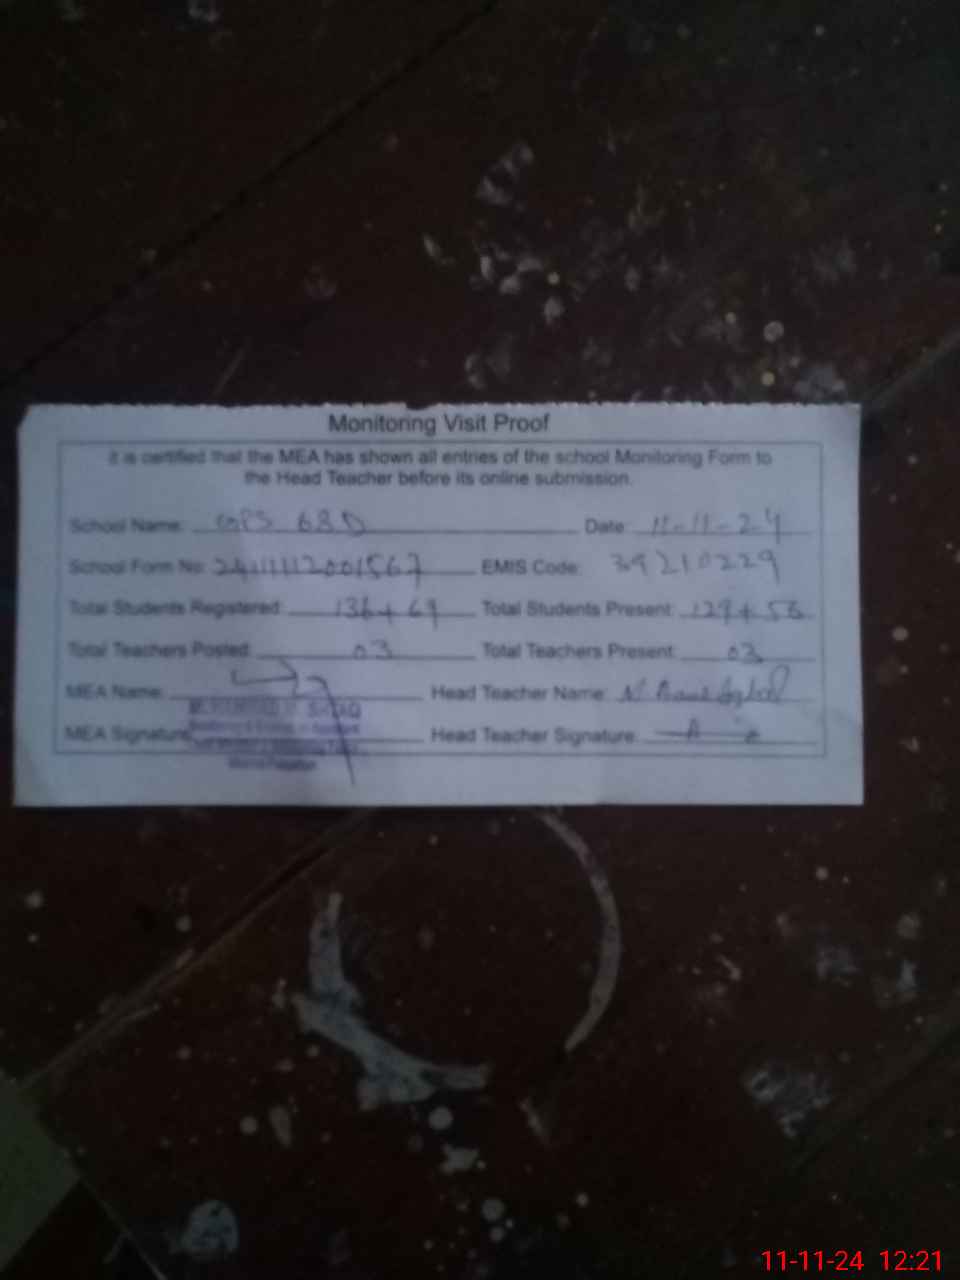 Monitoring Visit Proof
It is certified that the MEA has shown all entries of the school Monitoring Form to
the Head Teacher before its online submission.
School Name: GPS 68 D Date: 11-11-24
School Form No: 2411112001567 EMIS Code: 39210229
Total Students Registered: 136+69 Total Students Present: 129+
Total Teachers Posted: 03 Total Teachers Present: 03
MEA Name: Head Teacher Name:
MEA Signature Head Teacher Signature:
11-11-24 12:21